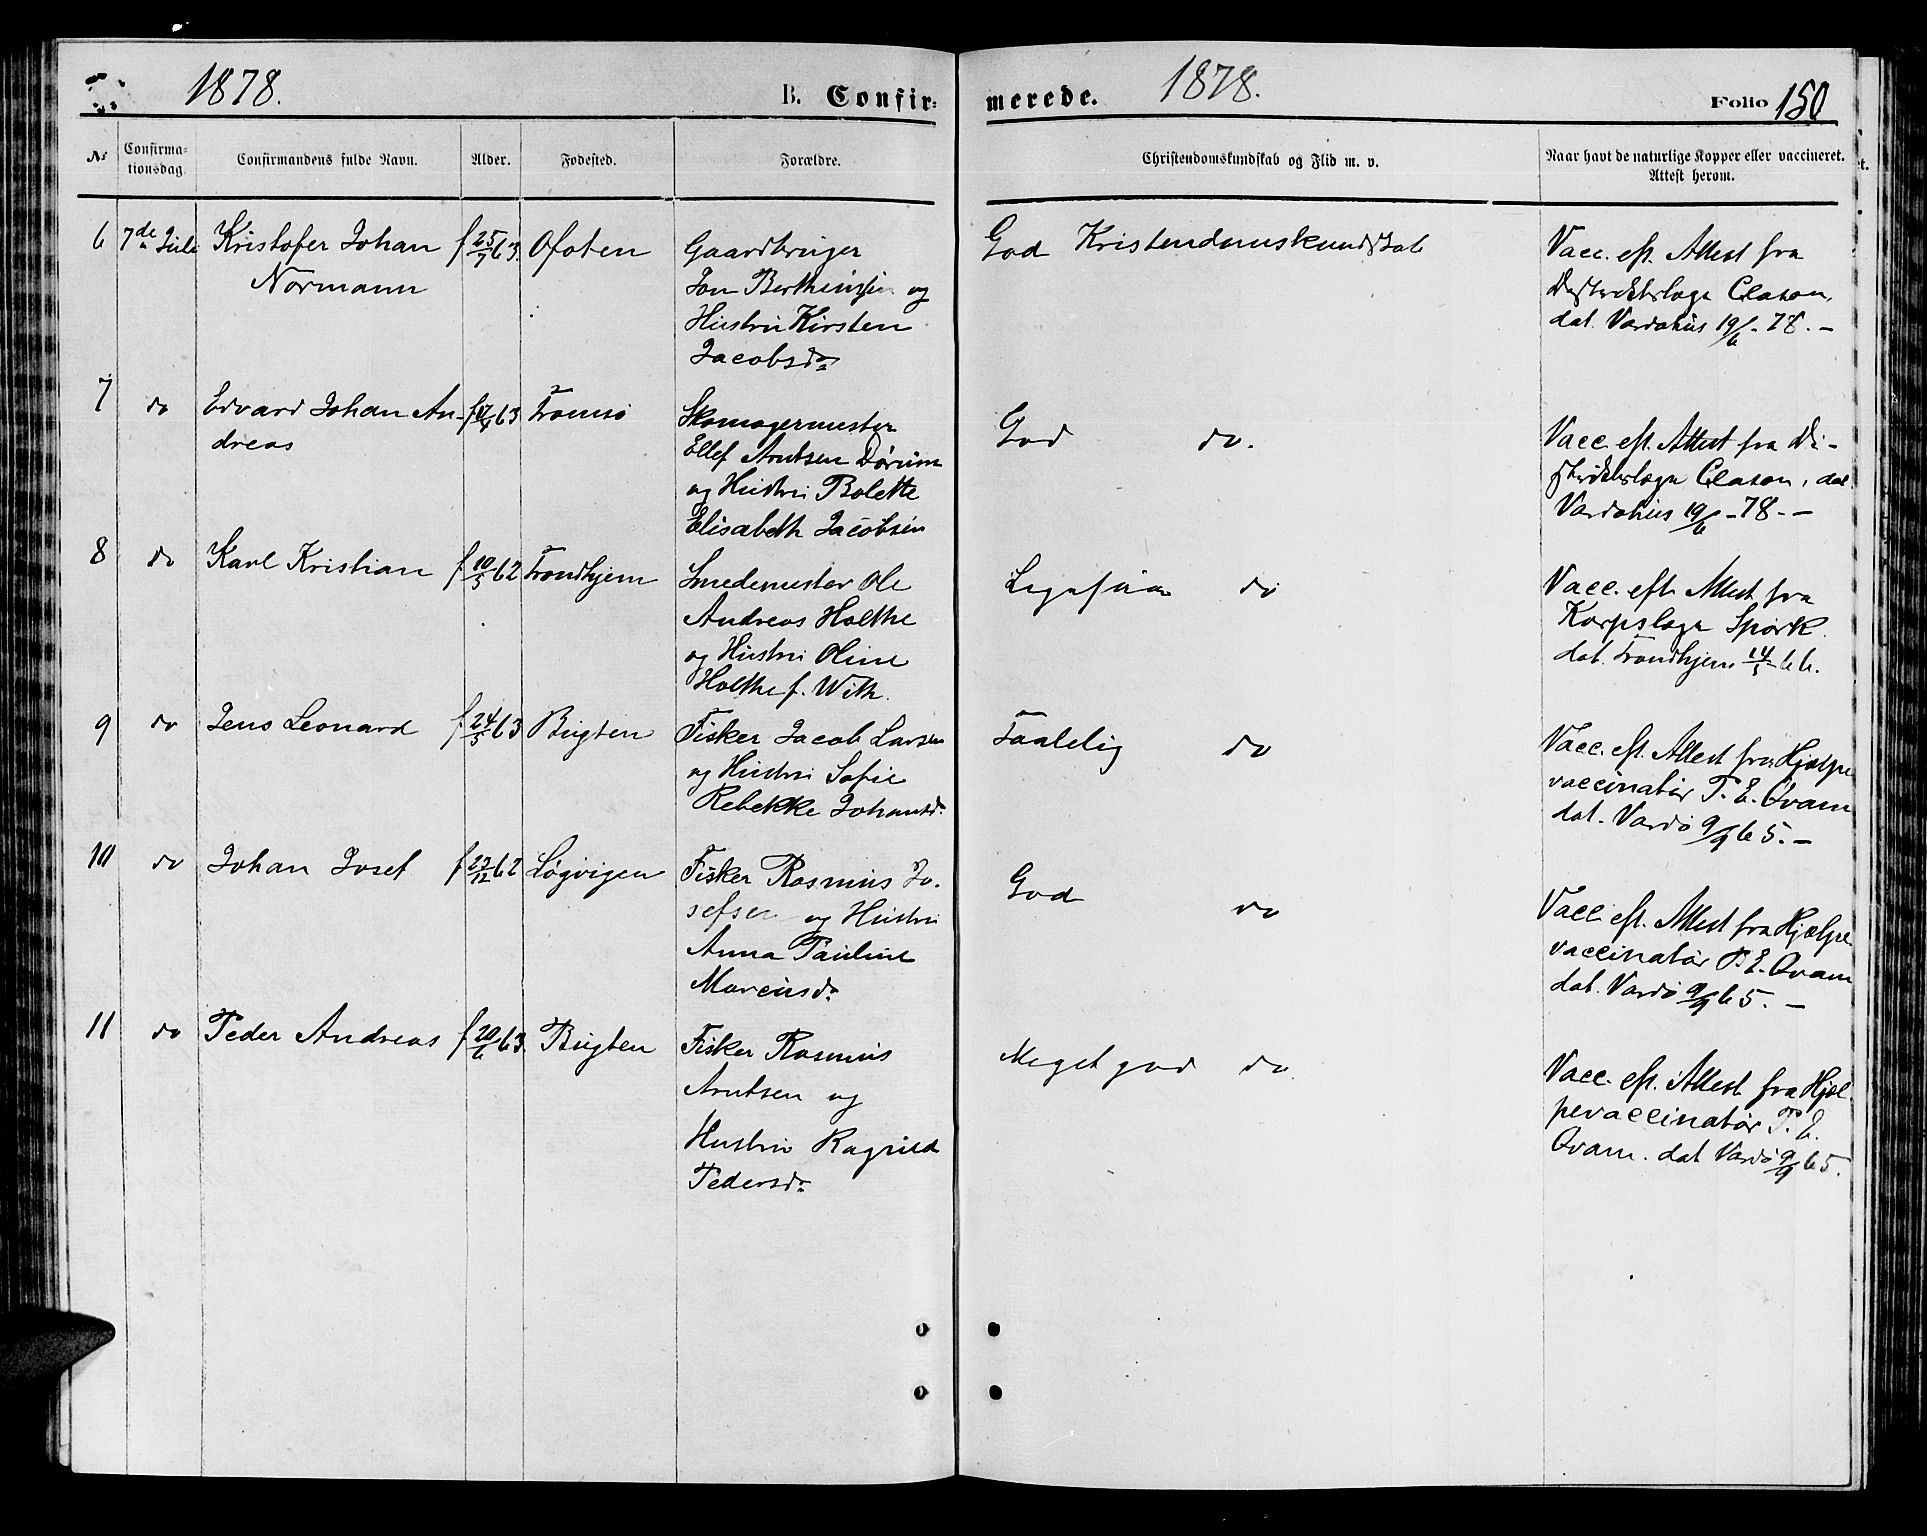 1878. B. Confir-
No Confirma-tionsdag. Confirmandens fulde Navn. Alder. Fødested. Forældre.
6 7de Juli Kristofer Johan f 25/7 63. Ofoten Gaardbruger
Normann Jon Berthinsen og
Hustru Kirsten
Jacobsdr
7 do Edvard Johan An- 63 Tromsø Skomagermester
dreas Ellef Arntsen Dørum
og Hustru Bolette
Elisabeth Jacobsen
8 do Karl Kristian f 10/5 62 Trondhjem Smedemester Ole
Andreas Holthe
og Hustru Oline
Holthe f. With.
9 do Jens Leonard f 24/5 63 Bugten Fisker Jacob Larsen
og Hustru Sofie
Rebekke Johansdr
10 do Johan Josef f 23/12 62 Løgvigen Fisker Rasmus Jo-
sefsen og Hustru
Anna Pauline
Marcusdr
11 do Peder Andreas f 20/6 63. Bugten Fisker Rasmus
Arntsen og
Hustru Ragnild
Pedersdr
merede. 1878. Folio 150
Christendomskundskab og Flid m. v. Naar havt de naturlige Kopper eller vaccineret.
Attest herom.
God Kristendomskundskab Vacc. eft. Attest fra
Distriktslæge Clason,
dat. Vardøhus 19/6 - 78. -
God do. Vacc. eft. Attest fra Di-
striktslæge Clason, dat.
Vardøhus 19/6 - 78. -
Ligesaa do Vacc. eft. Attest fra
Korpslæge Spørk.
dat. Trondhjem 14/5 66.
Taalelig do Vacc. eft. Attest fra Hjælpe
vaccinatør P. E. Qvam
dat. Vardø 9/9 65. -
God do Vacc. eft. Attest fra Hjælpe
vaccinatør P. E. Qvam
dat. Vardø 9/9 65. -
Meget god do. Vacc. eft. Attest fra Hjæl-
pevaccinatør P. E.
Qvam. dat Vardø 9/9 65.